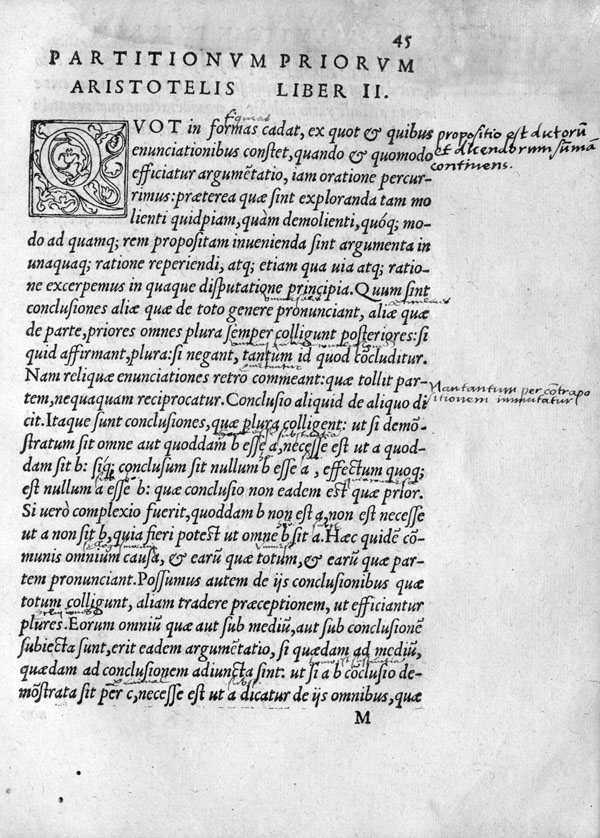 45
PARTITIONVM PRIORVM
ARISTOTELIS LIBER II.
QVOT in formas cadat, ex quot & quibus
enunciationibus constet, quando & quomodo
efficiatur argumētatio, iam oratione percur-
rimus: præterea quæ sint exploranda tam mo
lienti quidpiam, quàm demolienti, quóq; mo-
do ad quamq; rem propositam inuenienda sint argumenta in
unaquaq; ratione reperiendi, atq; etiam qua uia atq; ratio-
ne excerpemus in quaque disputatione principia. Quum sint
conclusiones aliæ quæ de toto genere pronunciant, aliæ quæ
de parte, priores omnes plura semper colligunt posteriores: si
quid affirmant, plura: si negant, tantum id quod cōcluditur.
Nam reliquæ enunciationes retrò commeant: quæ tollit par-
tem, nequaquam reciprocatur. Conclusio aliquid de aliquo di
cit. Itaque sunt conclusiones, quæ plura colligent: ut si demō-
stratum sit omne aut quoddam b esse a, necesse est ut a quod-
dam sit b: siq; conclusum sit nullum b esse a, effectum quoq;
est nullum a esse b: quæ conclusio non eadem est quæ prior.
Si verò complexio fuerit, quoddam b non est a, non est necesse
ut a non sit b, quia fieri potest ut omne b sit a. Hæc quidē cō-
munis omnium causa, & earū quæ totum, & earū quæ par-
tem pronunciant. Possumus autem de ijs conclusionibus quæ
totum colligunt, aliam tradere præceptionem, ut efficiantur
plures. Eorum omniū quæ aut sub mediū, aut sub conclusionē
subiecta sunt, erit eadem argumētatio, si quædam ad mediū,
quædam ad conclusionem adiuncta sint: ut si a b cōclusio de-
mōstrata sit per c, necesse est ut a dicatur de ijs omnibus, quæ
M
figuras
propositio est auctorū
et dicendorum sūmā
continens.
Nam tantum per cōtrapo
sitionem immutatur